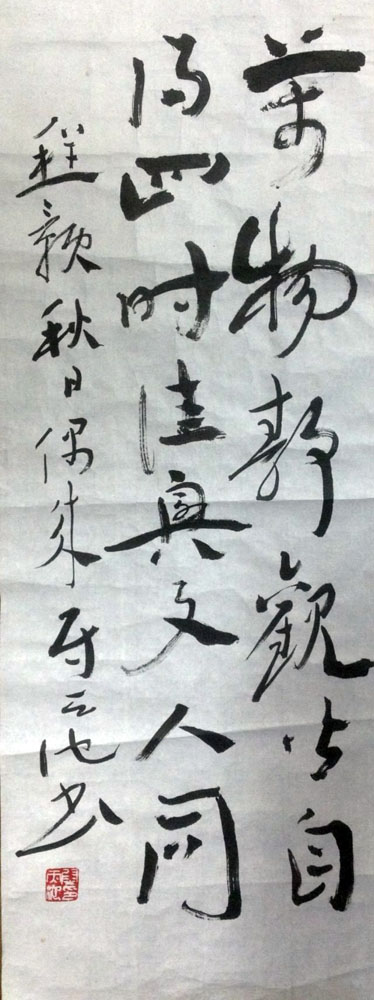 萬物静觀皆自
得四时佳興与人同
程颢秋日偶成 书